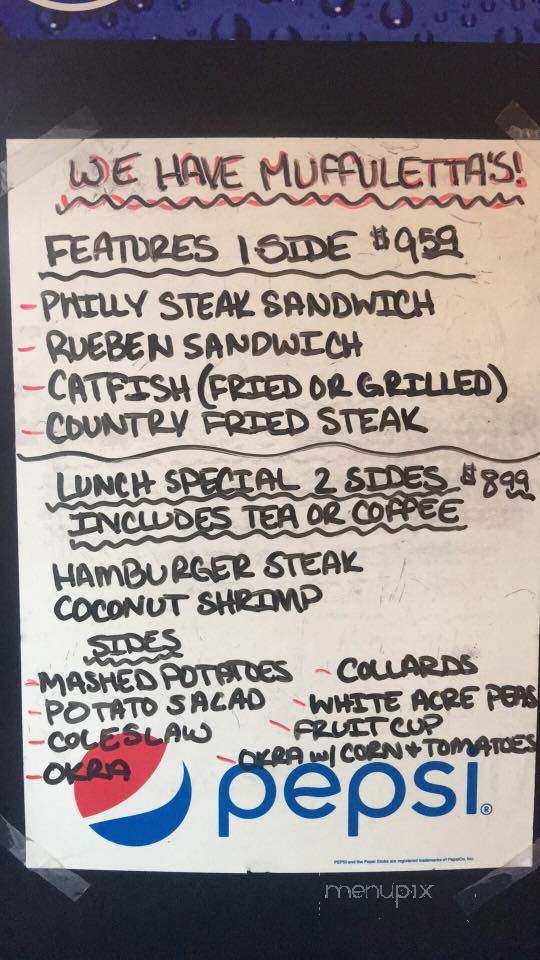 WE HAVE MUFFULETTA'S!
FEATURES 1 SIDE $9.59
- PHILLY STEAK SANDWICH
- RUEBEN SANDWICH
- CATFISH (FRIED OR GRILLED)
- COUNTRY FRIED STEAK
LUNCH SPECIAL 2 SIDES $8.99
INCLUDES TEA OR COFFEE
HAMBURGER STEAK
COCONUT SHRIMP
SIDES
- MASHED POTATOES
- POTATO SALAD
- COLESLAW
- OKRA
- COLLARDS
- WHITE ACRE PEAS
- FRUIT CUP
- OKRA W/ CORN + TOMATOES
pepsi®
PEPSI and the Pepsi Globe are registered trademarks of PepsiCo, Inc.
menupix